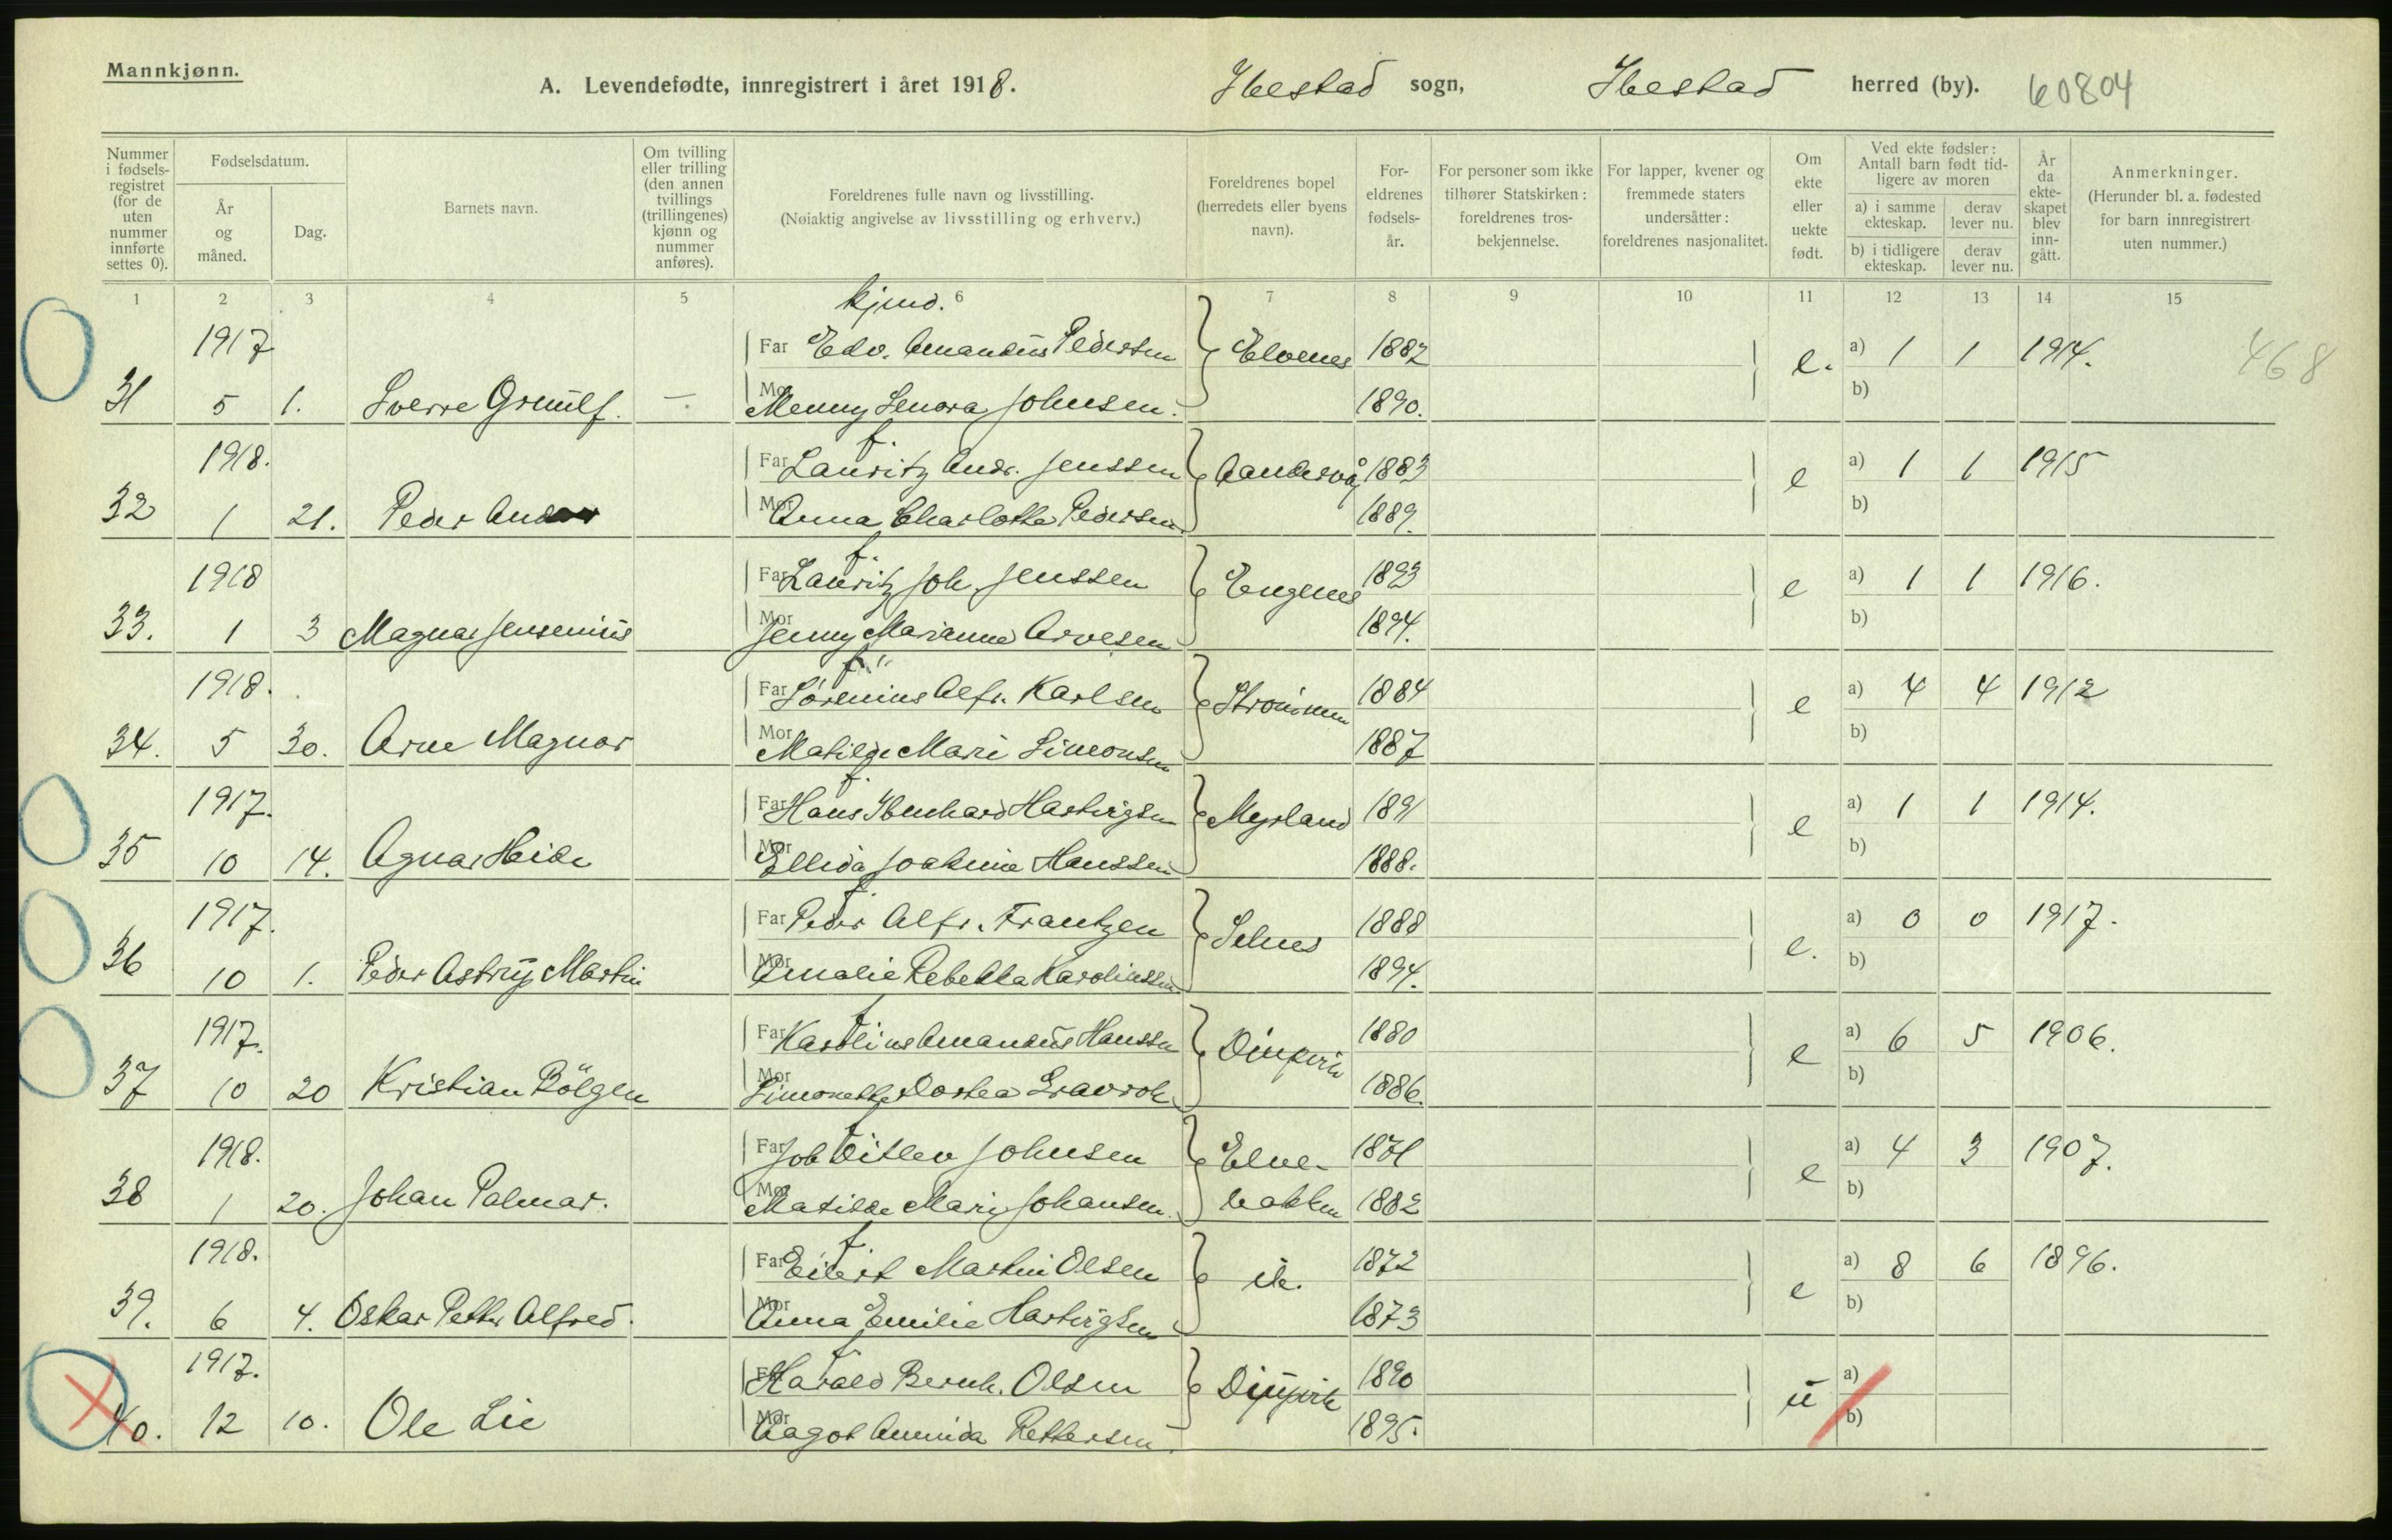 Mannkjønn.
A. Levendefødte, innregistrert i året 1918. Ibestad sogn, Ibestad herred (by). 60804
Nummer i fødsels-registret (for de uten nummer innførte settes 0).
Fødselsdatum.
År og måned.
Dag.
Barnets navn.
Om tvilling eller trilling (den annen tvillings (trillingenes) kjønn og nummer anføres).
Foreldrenes fulle navn og livsstilling.
(Nøiaktig angivelse av livsstilling og erhverv.)
Foreldrenes bopel (herredets eller byens navn).
For-eldrenes fødsels-år.
For personer som ikke tilhører Statskirken: foreldrenes tros-bekjennelse.
For lapper, kvener og fremmede staters undersåtter: foreldrenes nasjonalitet.
Om ekte eller uekte født.
Ved ekte fødsler: Antall barn født tid-ligere av moren
a) i samme ekteskap. derav lever nu.
b) i tidligere ekteskap. derav lever nu.
År da ekte-skapet blev inn-gått.
Anmerkninger.
(Herunder bl. a. fødested for barn innregistrert uten nummer.)
1 2 3 4 5 6 7 8 9 10 11 12 13 14 15
kjmd.
1917 Far Edv. Amandus Pedersen Elvenes 1882 e. a) 1 1 1914. 468
31 5 1. Sverre Grunulf. — Mor Menny Lenora Johnsen. 1890. b)
f.
1918. Far Lauritz Andr. Jenssen Aandervåg 1883 e a) 1 1 1915
32 1 21. Peder Mor Anna Charlotte Pedersen 1889. b)
f.
1918 Far Lauritz Joh. Jenssen Engenes 1893 e a) 1 1 1916.
33. 1 3 Magnar Jensenius Mor Jenny Marianne Arvesen 1894. b)
f.
1918. Far Sørenius Alfr. Karlsen Strømmen 1884 e a) 4 4 1912
34. 5 30. Arne Magnor Mor Matilde Marie Simonsen 1887 b)
f.
1917. Far Hans Hartvigsen Myrland 1891 e a) 1 1 1914.
35 10 14. Agnar Heide Mor Ellida Joakime Hanssen 1888. b)
f.
1917. Far Peder Alfr. Frantzen Selnes 1888 e. a) 0 0 1917.
36 10 1. Peder Astrup Martin Mor Amalie Rebekka Karolinssen 1894. b)
f
1917. Far Karolius Amandus Hanssen 1880 e a) 6 5 1906.
37 10 20 Kristian Bölgen Mor Simonette Dortea Gravrok 1886. b)
f
1918. Far Joh Ditlev Johnsen Elve- 1871 e a) 4 3 1907.
38 1 20. Johan Palmar. Mor Matilde Marie Johansen. bakken 1882 b)
f.
1918. Far Eilert Martin Olsen 1872 e a) 8 6 1896.
39. 6 4. Oskar Petter Alfred. Mor Anna Emilie Hartvigsen 1873 b)
f
1917. Far Harald Bernh. Olsen 1890 ü a)
40. 12 10. Ole Lie Mor Aagot Ammida Pettersen. 1895. b)